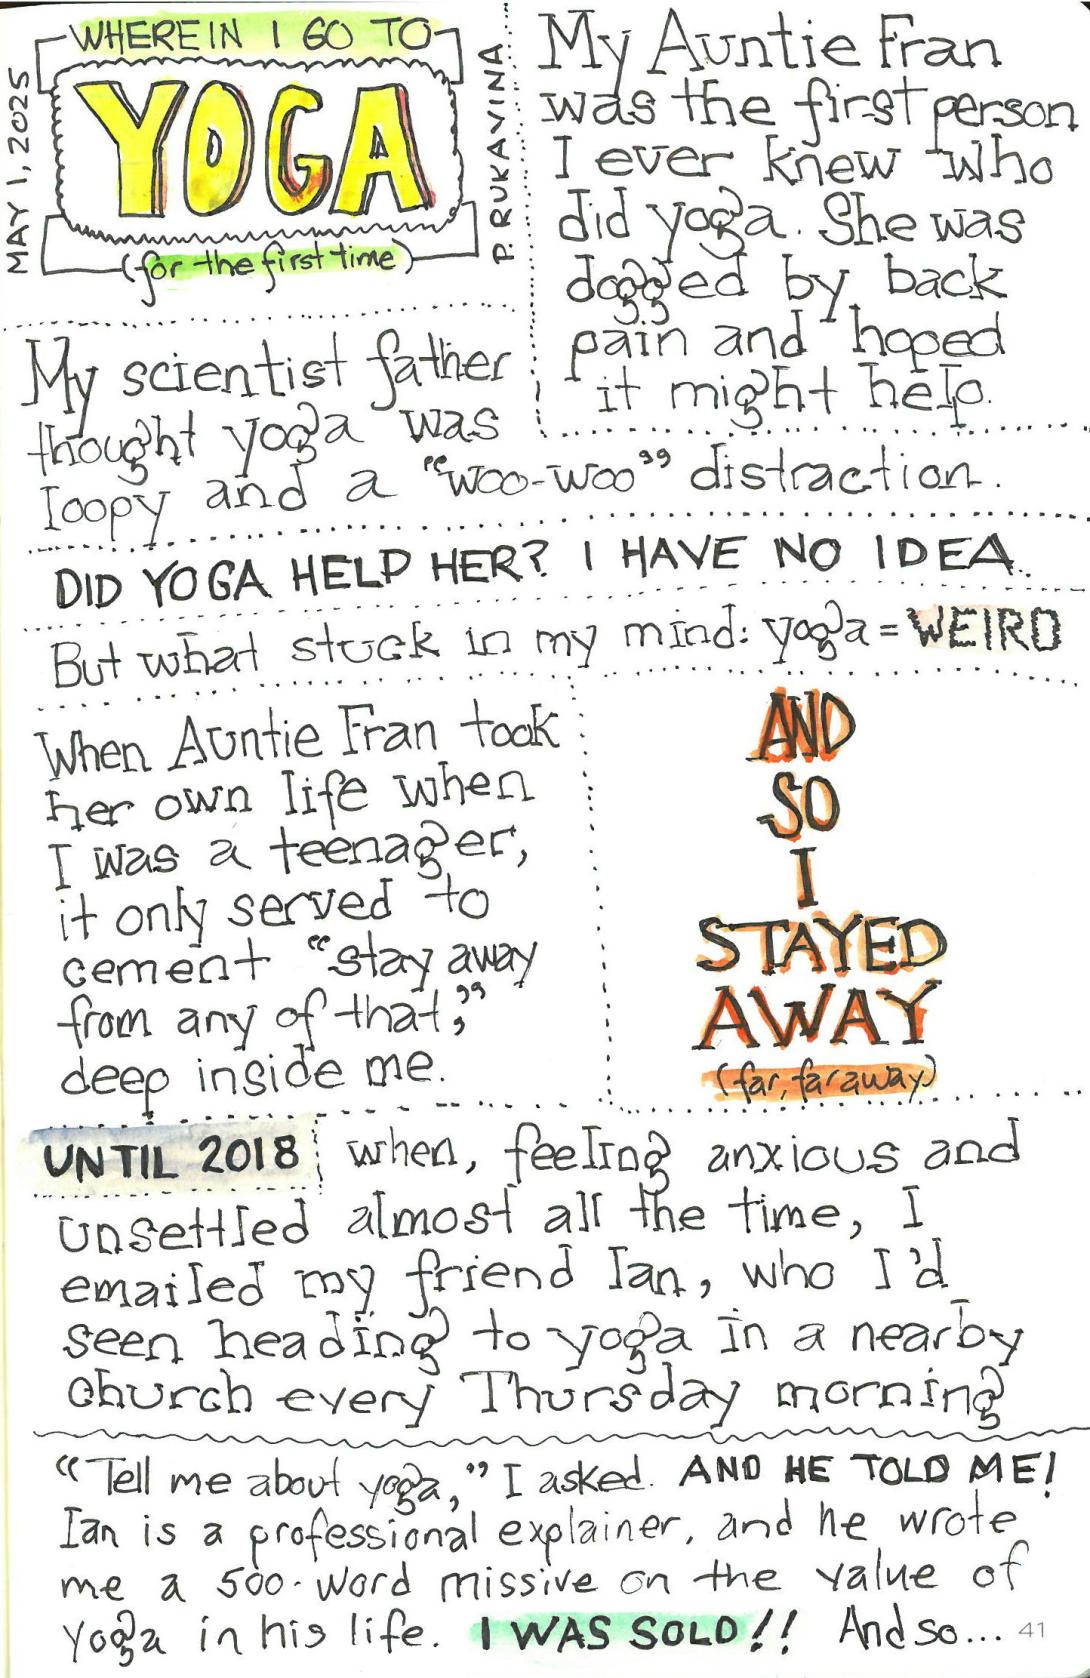 WHEREIN I GO TO
YOGA
(for the first time)
MAY 1, 2025
P. RUKAVINA
My Auntie Fran
was the first person
I ever knew who
did yoga. She was
dogged by back
pain and hoped
it might help.
My scientist father
thought yoga was
loopy and a "woo-woo" distraction.
DID YOGA HELP HER? I HAVE NO IDEA.
But what stuck in my mind: yoga = WEIRD
When Auntie Fran took
her own life when
I was a teenager,
it only served to
cement "stay away
from any of that,"
deep inside me.
AND
SO
I
STAYED
AWAY
(far, far away)
UNTIL 2018 when, feeling anxious and
unsettled almost all the time, I
emailed my friend Ian, who I'd
seen heading to yoga in a nearby
church every Thursday morning
"Tell me about yoga," I asked. AND HE TOLD ME!
Ian is a professional explainer, and he wrote
me a 500-word missive on the value of
yoga in his life. I WAS SOLD!! And so...
41